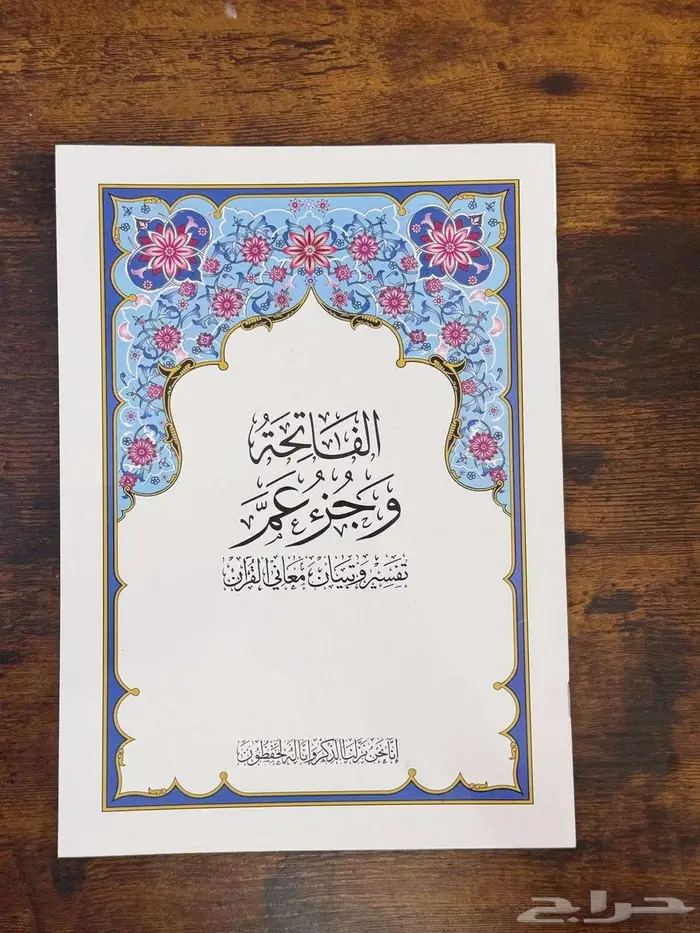 الفَاتِحَةُ
وَجُزْءُ عَمَّ
تفسير وتبيان معاني القرآن
إنا نحن نزلنا الذكر وإنا له لحفظون
حراج